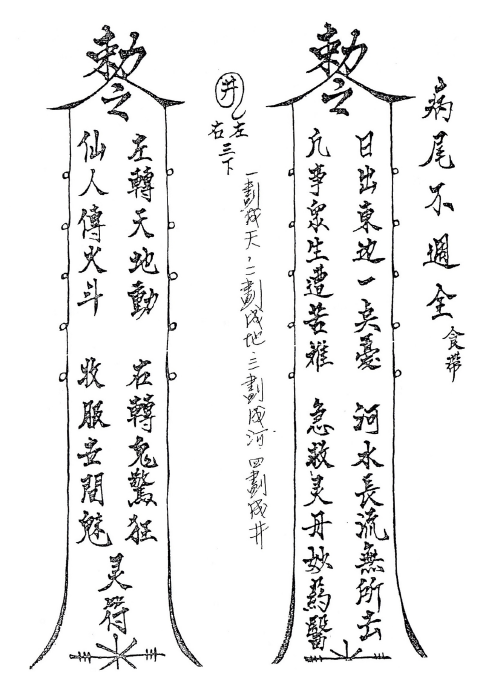 病尾不週全
食帶
勅
之
日出東边一点憂
河水長流無所去
凡事眾生遭苦难
急救灵丹妙為醫
井
左
右
三下
一劃成天,二劃成地,三劃成河,四劃成井
勅
之
左轉天地動
右轉鬼驚狂
仙人傳火斗
收服世間魅
灵符